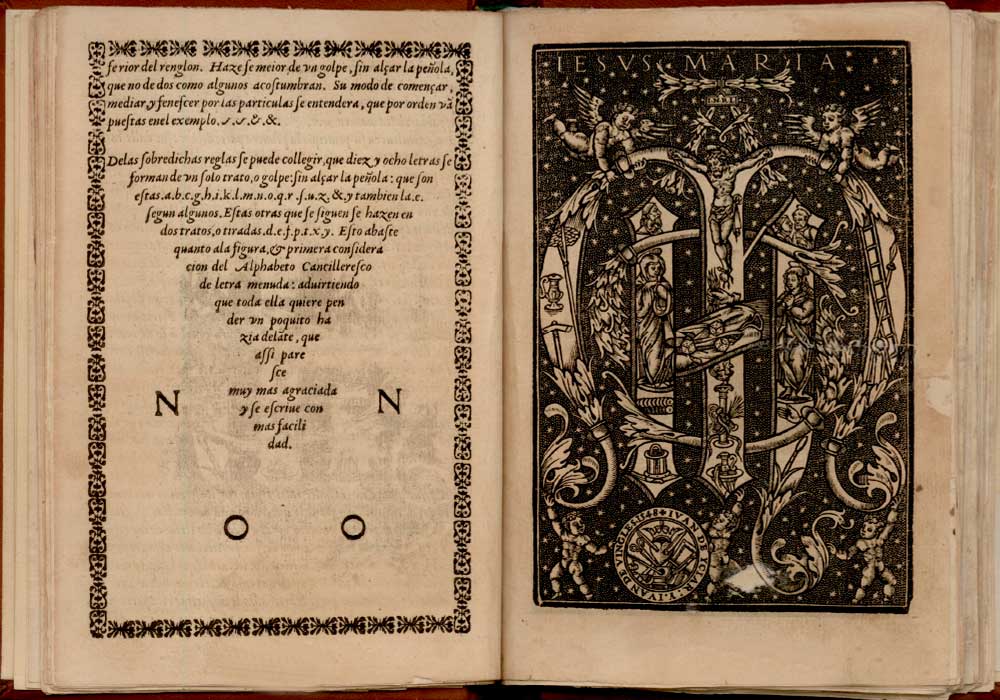 ſerior del renglon. Haze ſe meior de vn golpe, ſin alçar la peñola,
que no de dos como algunos acoſtumbran. Su modo de començar,
mediar, y feneſcer por las particulas ſe entendera, que por orden vã
pueſtas enel exemplo.
Delas ſobredichas reglas ſe puede collegir, que diez y ocho letras ſe
forman de vn ſolo trato, o golpe: ſin alçar la peñola: que ſon
eſtas. a. b. c. g. h. i. k. l. m. n. o. q. r. ſ. u. z. &. y tambien la. e.
ſegun algunos. Eſtas otras que ſe ſiguen ſe hazen en
dos tratos, o tiradas. d. e. f. p. t. x. y. Eſto abaſte
quanto ala figura, & primera conſidera
cion del Alphabeto Cancillereſco
de letra menuda: aduirtiendo
que toda ella quiere pen
der vn poquito ha
zia delãte, que
aſſi pare
ſce
muy mas agraciada
N y ſe eſcriue con N
mas facili
dad.
O O
IESVS MARIA
INRI
IVAN DE YCIAR: Y. IVAN DE VINGLES: 1548